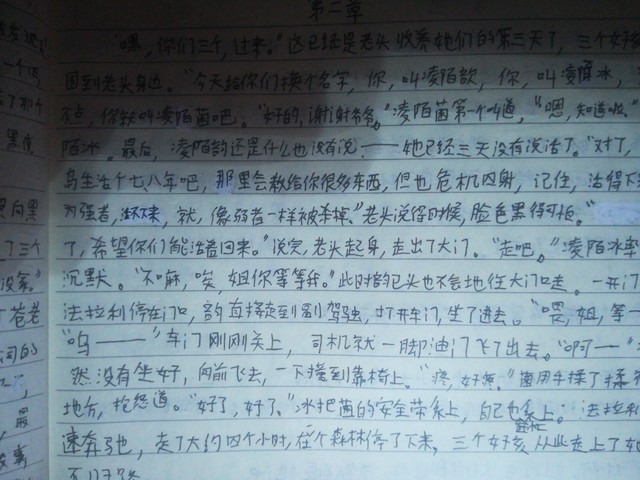 第二章
"嘿,你们三个,过来。"这已经是老头收养她们的第三天了,三个女孩
围到老头身边。"今天给你们换个名字,你,叫凌陌歆,你,叫凌陌冰,
不点,你就叫凌陌茵吧。"好的,谢谢爷爷。"凌陌茵第一个叫道,"嗯,知道啦。
陌冰。最后,凌陌韵还是什么也没有说——她已经三天没有说话了。"对了,
岛生活个七八年吧,那里会教给你很多东西,但也危机四射,记住,活得下
为强者,活不下来,就,像弱者一样被杀掉。"老头说得时候,脸色黑得可怕。"
了,希望你们能活着回来。"说完,老头起身,走出了大门。"走吧。"凌陌冰率
沉默。"不嘛,唉,姐你等等我。"此时的已头也不会地往大门口走。一开门
法拉利停在门口,韵直接走到副驾驶,打开车门,坐了进去。"喂,姐,等一
"呜——"车门刚刚关上,司机就一脚油门飞了出去。"啊——"
然没有坐好,向前飞去,一下撞到靠椅上。"疼,好疼。"茵用手揉了揉
地方,抱怨道。"好了,好了。"冰把茵的安全带系上,自己也系上。法拉利
速奔驰,走了大约四个小时,在个森林停了下来,三个女孩从此走上了
不归路
老
一个
黑夜
向黑
了三个
没拿。"
苍老
同的
最
故事